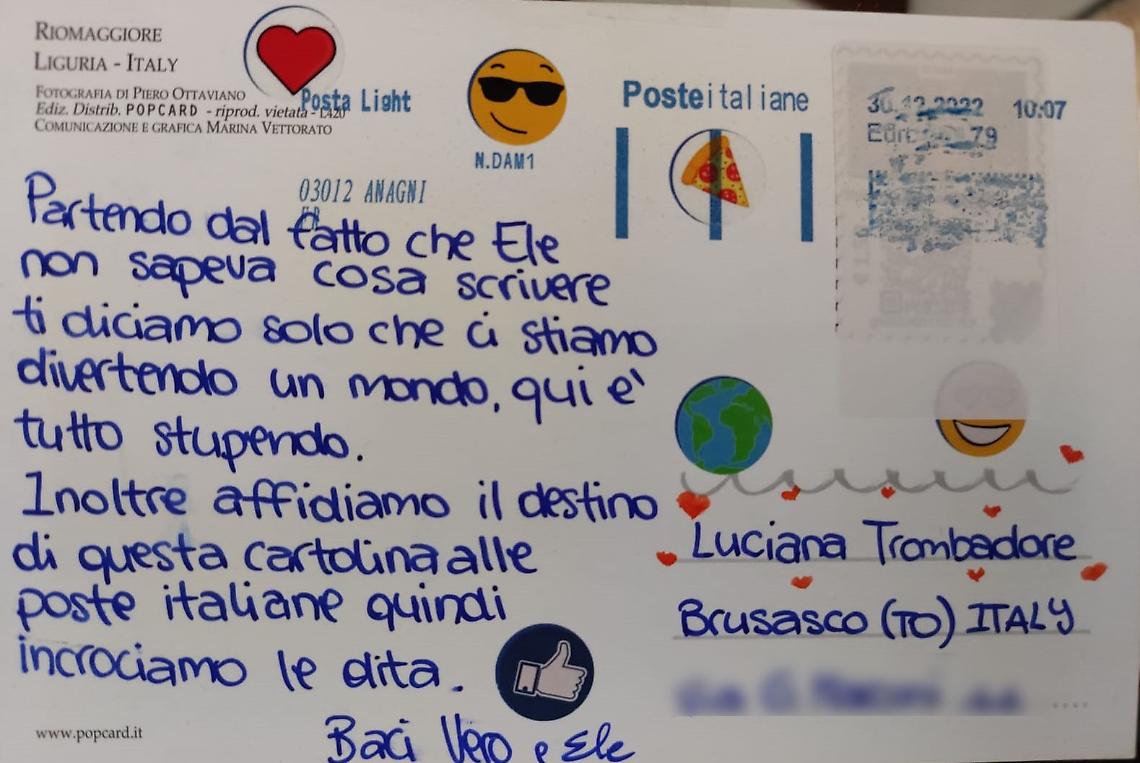 RIOMAGGIORE
LIGURIA - ITALY
FOTOGRAFIA DI PIERO OTTAVIANO
Ediz. Distrib. POPCARD - riprod. vietata - L420
COMUNICAZIONE E GRAFICA MARINA VETTORATO
Posta Light
N.DAM1
Posteitaliane
30.12.2022 10:07
03012 ANAGNI
FR
Partendo dal fatto che Ele
non sapeva cosa scrivere
ti diciamo solo che ci stiamo
divertendo un mondo, qui e'
tutto stupendo.
Inoltre affidiamo il destino
di questa cartolina alle
poste italiane quindi
incrociamo le dita.
Baci Vero e Ele
Luciana Trombadore
Brusasco (TO) ITALY
www.popcard.it